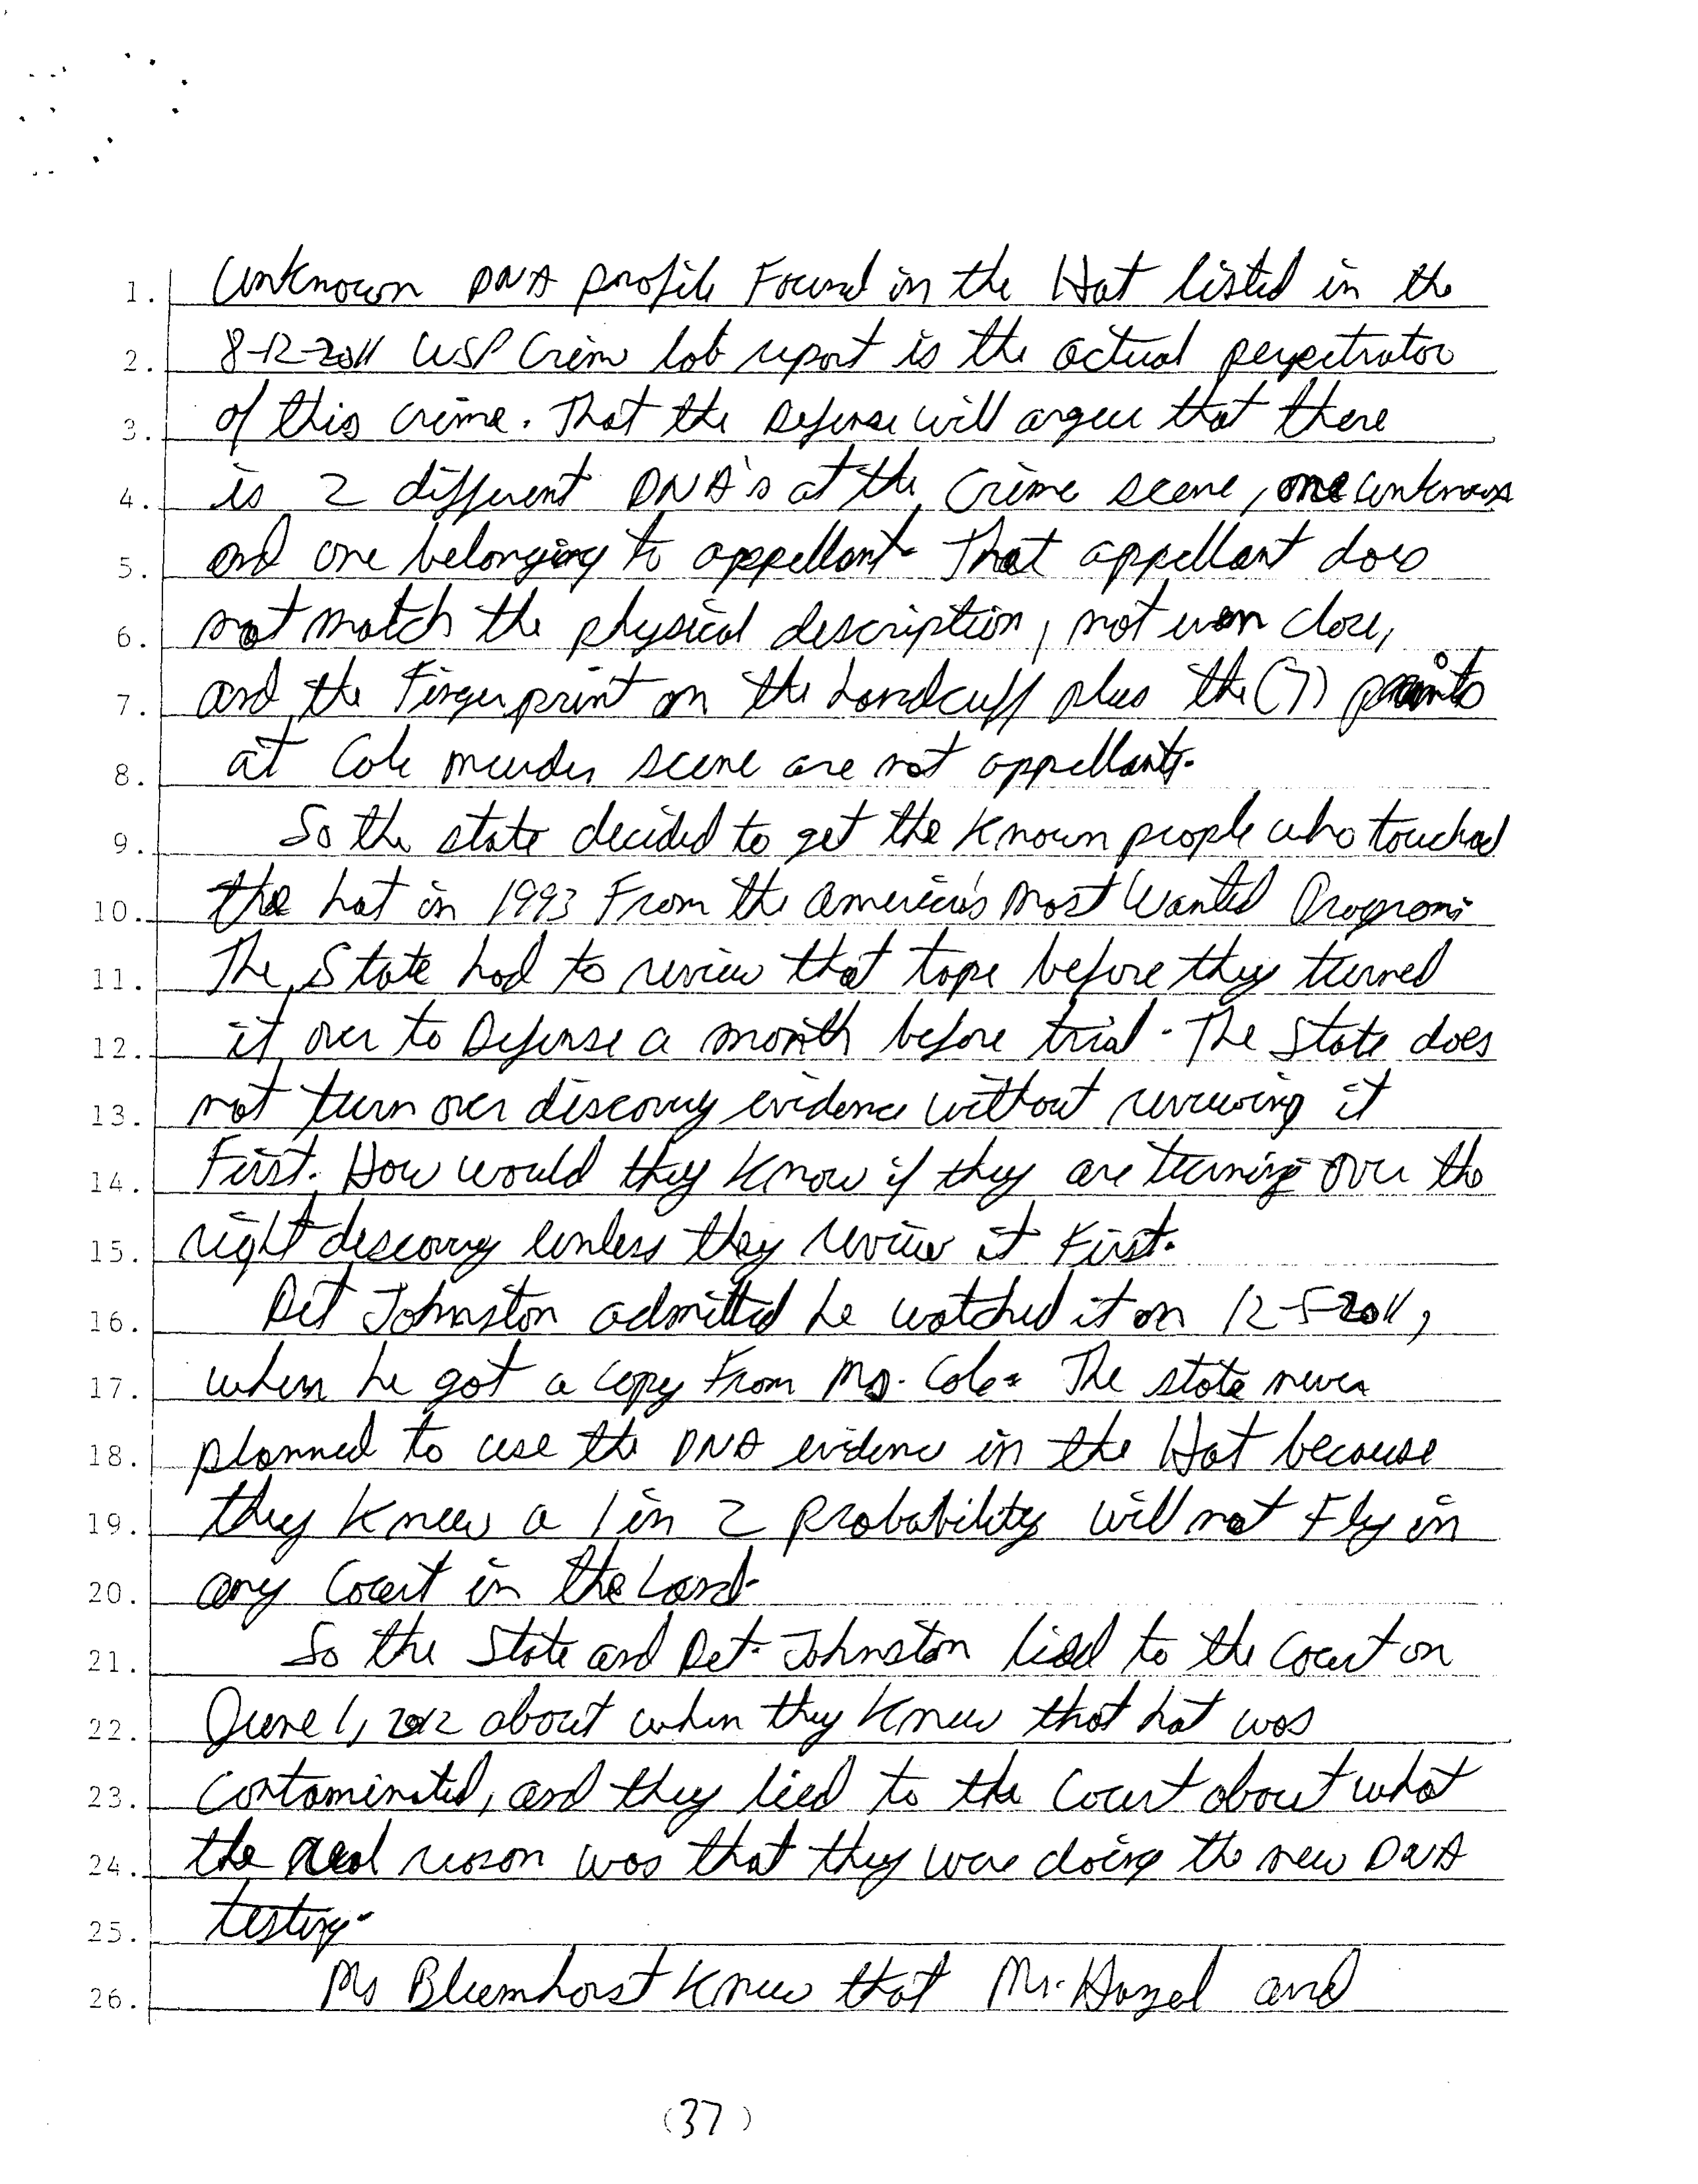 1. Unknown DNA profile Found in the Hat listed in the
2. 8-12-2011 WSP Crime lab report is the actual perpetrator
3. of this crime. That the Defense will argue that there
4. is 2 different DNA's at the Crime scene, one unknown
5. and one belonging to appellant. That appellant does
6. not match the physical description, not even close,
7. and the Fingerprint on the handcuff plus the (7) prints
8. at Cole murder scene are not appellants.
9. So the state decided to get the known people who touched
10. the hat in 1993 From the America's Most Wanted Program.
11. The State had to review that tape before they turned
12. it over to Defense a month before trial. The State does
13. not turn over discovery evidence without reviewing it
14. First. How would they know if they are turning over the
15. right discovery unless they review it First.
16. Det Johnston admitted he watched it on 12-5-2011,
17. when he got a copy From Ms. Cole. The state never
18. planned to use the DNA evidence in the Hat because
19. they knew a 1 in 2 probability will not Fly in
20. any Court in the Land.
21. So the State and Det. Johnston lied to the Court on
22. June 1, 2012 about when they knew that hat was
23. contaminated, and they lied to the Court about what
24. the real reason was that they were doing the new DNA
25. testing.
26. Ms Blumhorst knew that Mr. Hazel and
(37)